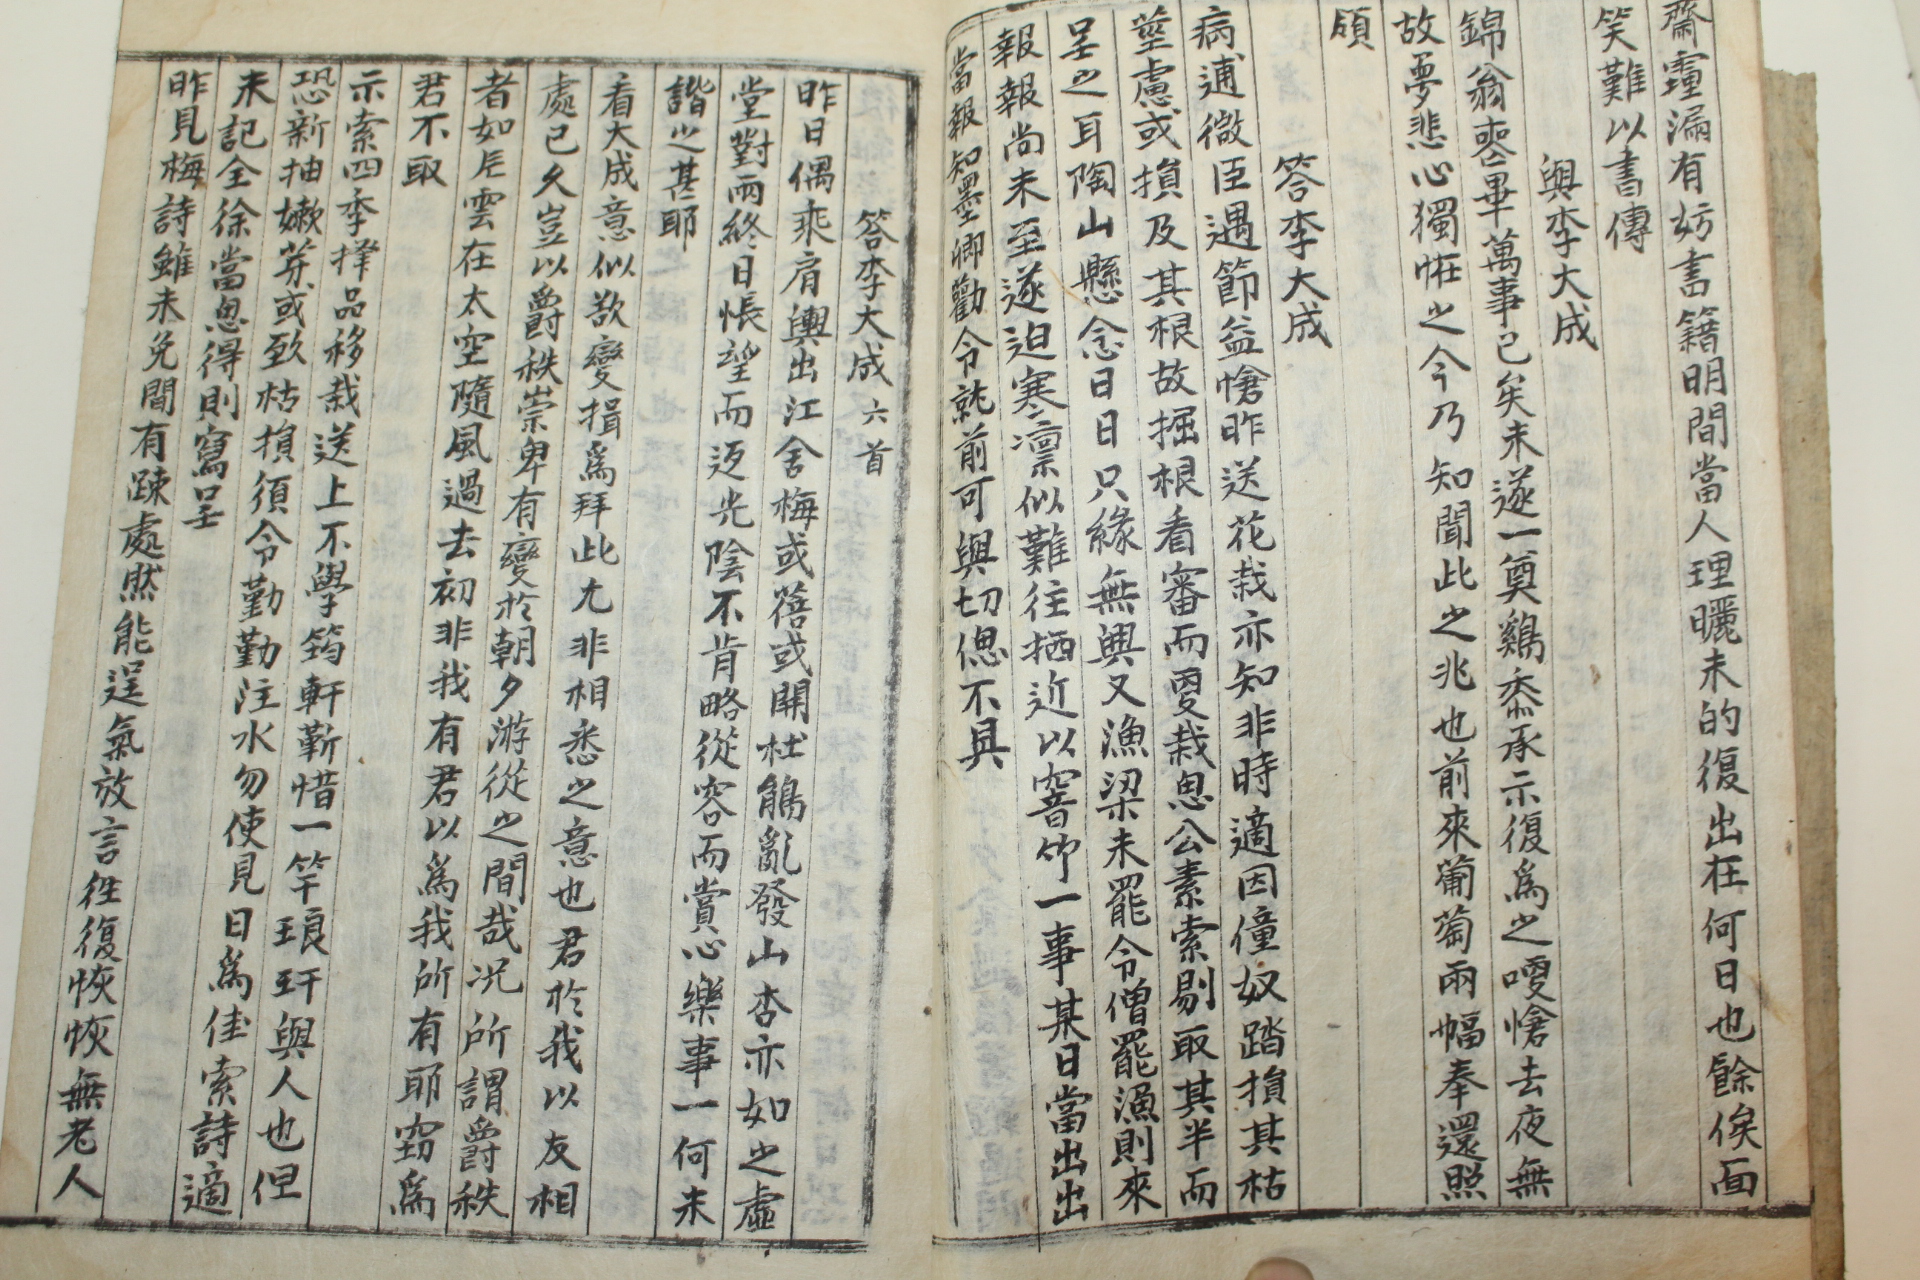 齋霪漏有妨書籍明間當人理曬未的復出在何日也餘俟面
笑難以書傳
與李大成
錦翁喪畢萬事已矣未遂一奠鷄黍承示復爲之哽愴去夜無
故夢悲心獨恠之今乃知聞此之兆也前來葡萄兩幅奉還照
領
答李大成
病逋微臣遇節益愴昨送花栽亦知非時適因僮奴踏損其枯
莖慮或損及其根故掘根看審而更栽思公素索剔取其半而
呈之耳陶山懸念日日只緣無輿又漁梁未罷令僧罷漁則來
報報尚未至遂迫寒凛似難往栖近以窨竹一事某日當出出
當報知墨卿勸令就前可與切偲不具
答李大成 六首
昨日偶乘肩輿出江舍梅或蓓或開杜鵑亂發山杏亦如之虛
堂對雨終日悵望而返光陰不肯略從容而賞心樂事一何未
諧之甚耶
看大成意似欲變揖爲拜此尤非相悉之意也君於我以友相
處已久豈以爵秩崇卑有變於朝夕游從之間哉况所謂爵秩
者如片雲在太空隨風過去初非我有君以爲我所有耶窃爲
君不取
示索四季擇品移栽送上不學筠軒靳惜一竿琅玕與人也但
恐新抽嫩芽或致枯損須令勤勤注水勿使見日爲佳索詩適
未記全徐當思得則寫呈
昨見梅詩雖未免間有踈處然能逞氣放言徃復恢恢無老人